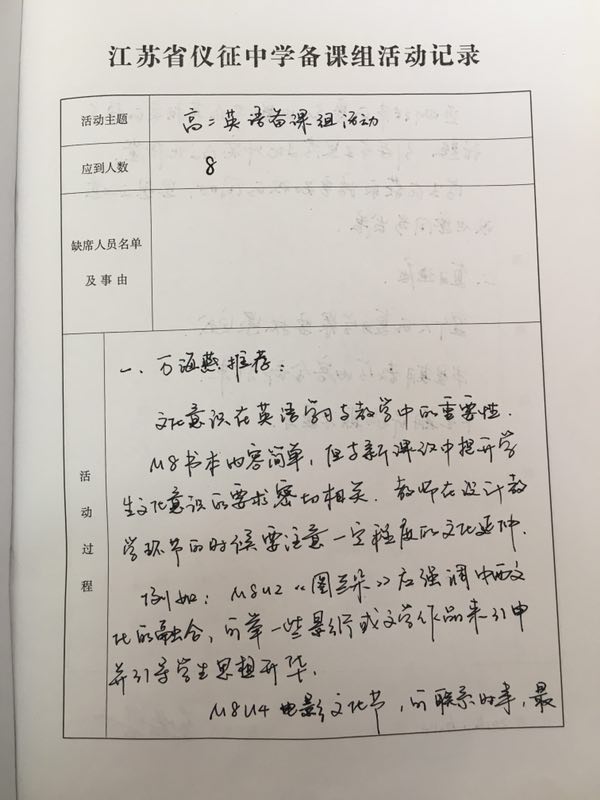 江苏省仪征中学备课组活动记录
活动主题 高二英语备课组活动
应到人数 8
缺席人员名单
及事由
活动过程
一、万海燕推荐：
文化意识在英语学习与教学中的重要性.
M8书本内容简单，但与新课改中提升学
生文化意识的要求密切相关. 教师在设计教
学环节的时候要注意一定程度的文化延伸.
例如：M8U2《图兰朵》应强调中西文
化的融合，可举一些影片或文学作品来引申
并引导学生思想升华.
M8U4 电影文化节，可联系时事，最